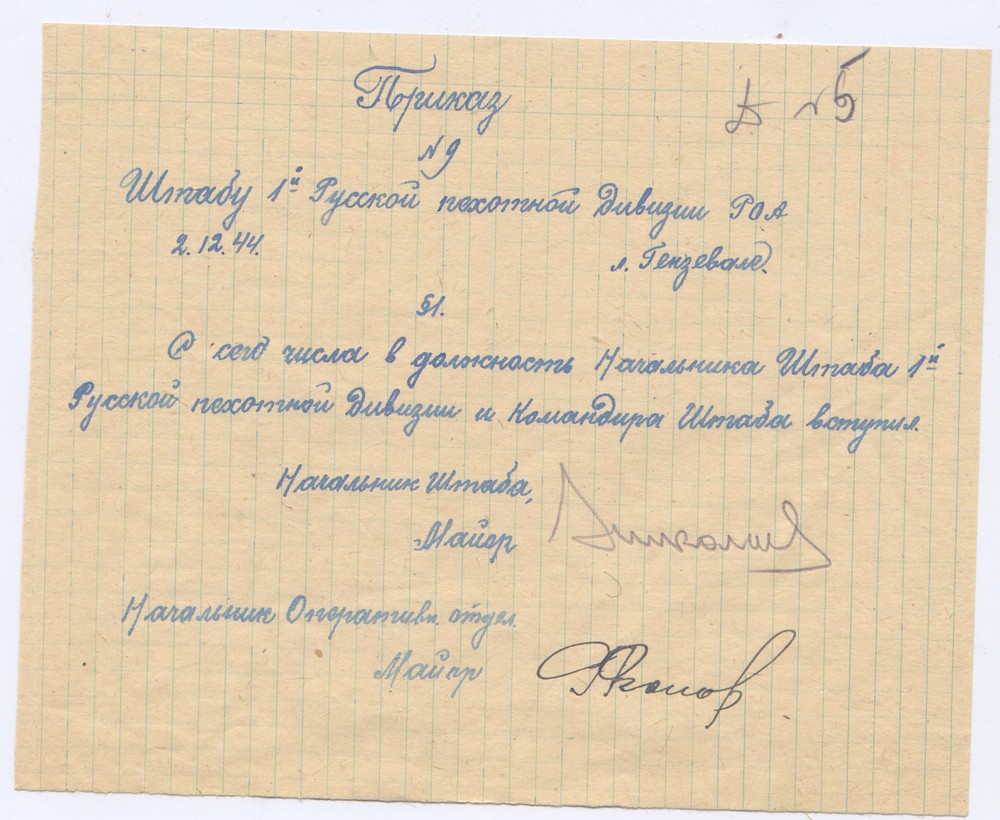 Приказ
№ 9
Штабу 1й Русской пехотной Дивизии РОА
2.12.44. л. Гензевальд.
§1.
С сего числа в должность Начальника Штаба 1й
Русской пехотной Дивизии и Командира Штаба вступил.
Начальник Штаба,
Майор Николаев
Начальник Оперативн. отдел.
Майор